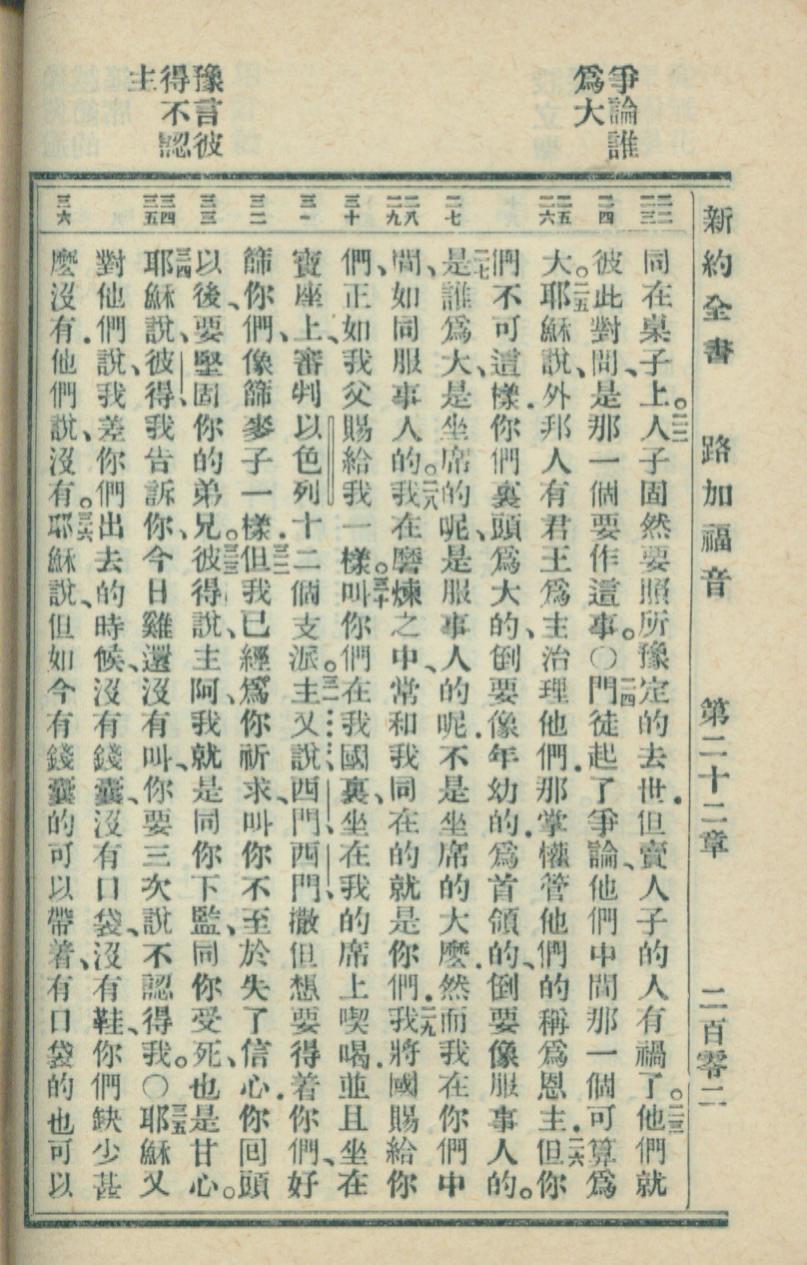 新約全書 路加福音 第二十二章 二百零二
爭論誰
爲大
豫言彼
得不認
主
二二 二三
二四
二五 二六
二七
二八 二九
三十
三一
三二
三三
三四 三五
三六
同在桌子上。二二人子固然要照所豫定的去世．但賣人子的人有禍了。二三他們就
彼此對問、是那一個要作這事。〇二四門徒起了爭論、他們中間那一個可算爲
大。二五耶穌說、外邦人有君王爲主治理他們．那掌權管他們的稱爲恩主．二六但你
們不可這樣．你們裏頭爲大的、倒要像年幼的．爲首領的、倒要像服事人的。
二七是誰爲大、是坐席的呢、是服事人的呢．不是坐席的大麽．然而我在你們中
間、如同服事人的。二八我在磨煉之中、常和我同在的就是你們．二九我將國賜給你
們、正如我父賜給我一樣。三十叫你們在我國裏、坐在我的席上喫喝．並且坐在
寶座上、審判以色列十二個支派。三一主又說、西門、西門、撒但想要得着你們、好
篩你們、像篩麥子一樣．三二但我已經爲你祈求、叫你不至於失了信心．你回頭
以後、要堅固你的弟兄。三三彼得說、主阿、我就是同你下監、同你受死、也是甘心。
三四耶穌說、彼得、我告訴你、今日雞還沒有叫、你要三次說不認得我。〇三五耶穌又
對他們說、我差你們出去的時候、沒有錢囊、沒有口袋、沒有鞋、你們缺少甚
麽沒有．他們說、沒有。三六耶穌說、但如今有錢囊的可以帶着、有口袋的也可以